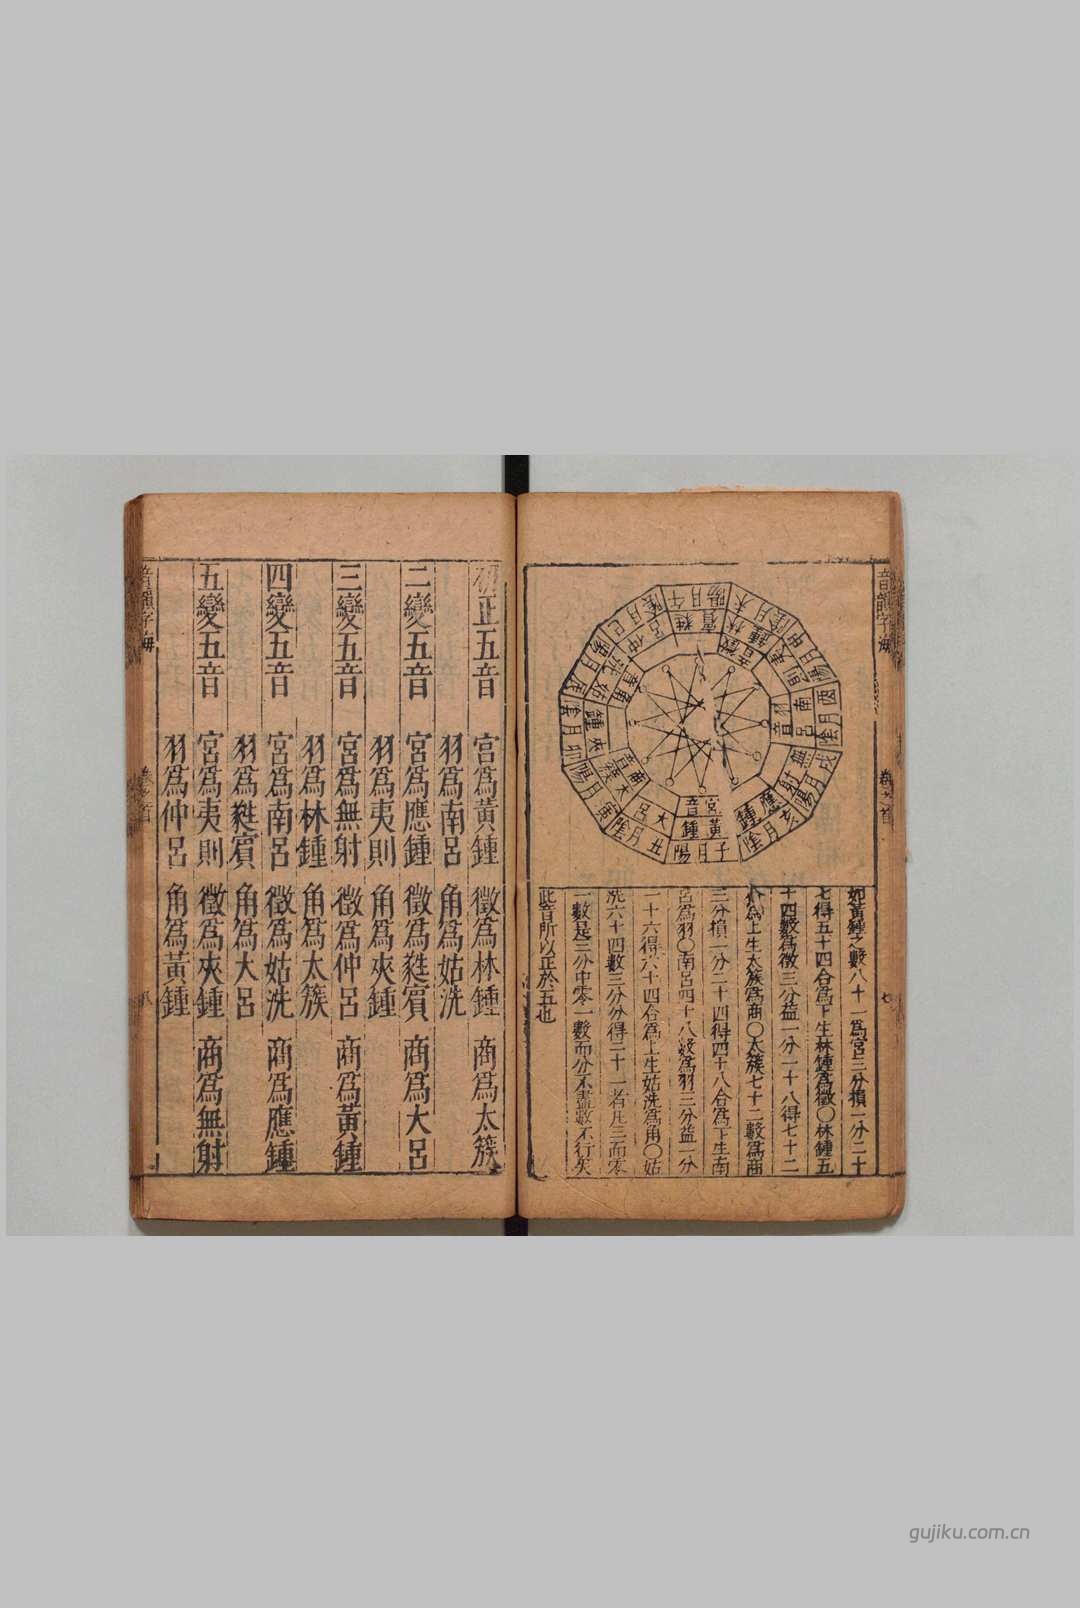 音韻字海
卷之首
七
子月陽
黃鍾
宮音
丑月陰
大呂
寅月陽
太簇
商音
卯月陰
夾鍾
辰月陽
姑洗
角音
巳月陰
仲呂
午月陽
蕤賓
未月陰
林鍾
徵音
申月陽
夷則
酉月陰
南呂
羽音
戌月陽
無射
亥月陰
應鍾
如黃鍾之數八十一爲宮三分損一分二十
七得五十四合爲下生林鍾爲徵〇林鍾五
十四數爲徵三分益一分一十八得七十二
爲上生太簇爲商〇太簇七十二數爲商
三分損一分二十四得四十八合爲下生南
呂爲羽〇南呂四十八數爲羽三分益一分
一十六得六十四合爲上生姑洗爲角〇姑
洗六十四數三分分得二十一者凡三而零
一數是三分中零一數而分不盡數不行矣
此音所以正於五也
初正五音 宮爲黃鍾 徵爲林鍾 商爲太簇
羽爲南呂 角爲姑洗
二變五音 宮爲應鍾 徵爲蕤賓 商爲大呂
羽爲夷則 角爲夾鍾
三變五音 宮爲無射 徵爲仲呂 商爲黃鍾
羽爲林鍾 角爲太簇
四變五音 宮爲南呂 徵爲姑洗 商爲應鍾
羽爲蕤賓 角爲大呂
五變五音 宮爲夷則 徵爲夾鍾 商爲無射
羽爲仲呂 角爲黃鍾
音韻字海
卷之首
八
gujiku.com.cn